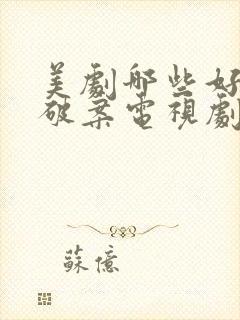 美劇哪些好
破案電視劇
蘇億